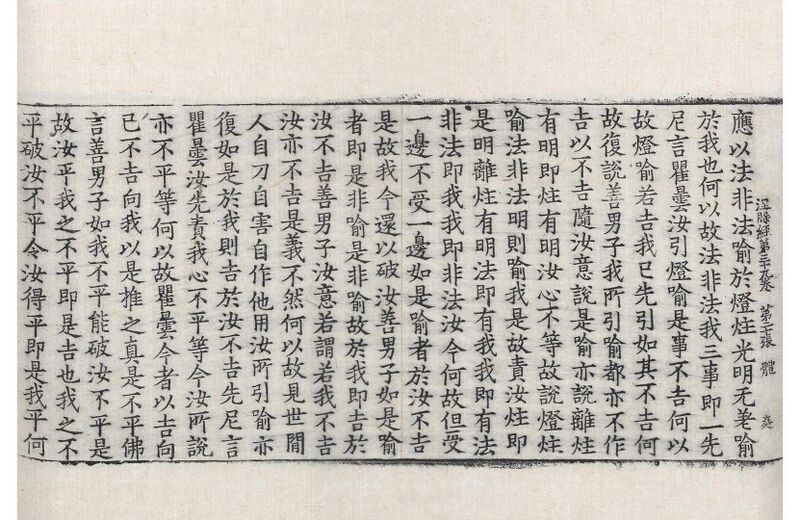 經第三十九卷 第二張 體
應以法非法喻於燈炷光明无差喻
於我也何以故法非法我三事即一先
尼言瞿曇汝引燈喻是事不吉何以
故燈喻若吉我已先引如其不吉何
故復說善男子我所引喻都亦不作
吉以不吉隨汝意說是喻亦說離炷
有明即炷有明汝心不等故說燈炷
喻法非法明則喻我是故責汝炷即
是明離炷有明法即有我我即有法
非法即我我即非法汝今何故但受
一邊不受一邊如是喻者於汝不吉
是故我今還以破汝善男子如是喻
者即是非喻是非喻故於我即吉於
汝不吉善男子汝意若謂若我不吉
汝亦不吉是義不然何以故見世間
人自刀自害自作他用汝所引喻亦
復如是於我則吉於汝不吉先尼言
瞿曇汝先責我心不平等今汝所說
亦不平等何以故瞿曇今者以吉向
已不吉向我以是推之真是不平佛
言善男子如我不平能破汝不平是
故汝平我之不平即是吉也我之不
平破汝不平令汝得平即是我平何